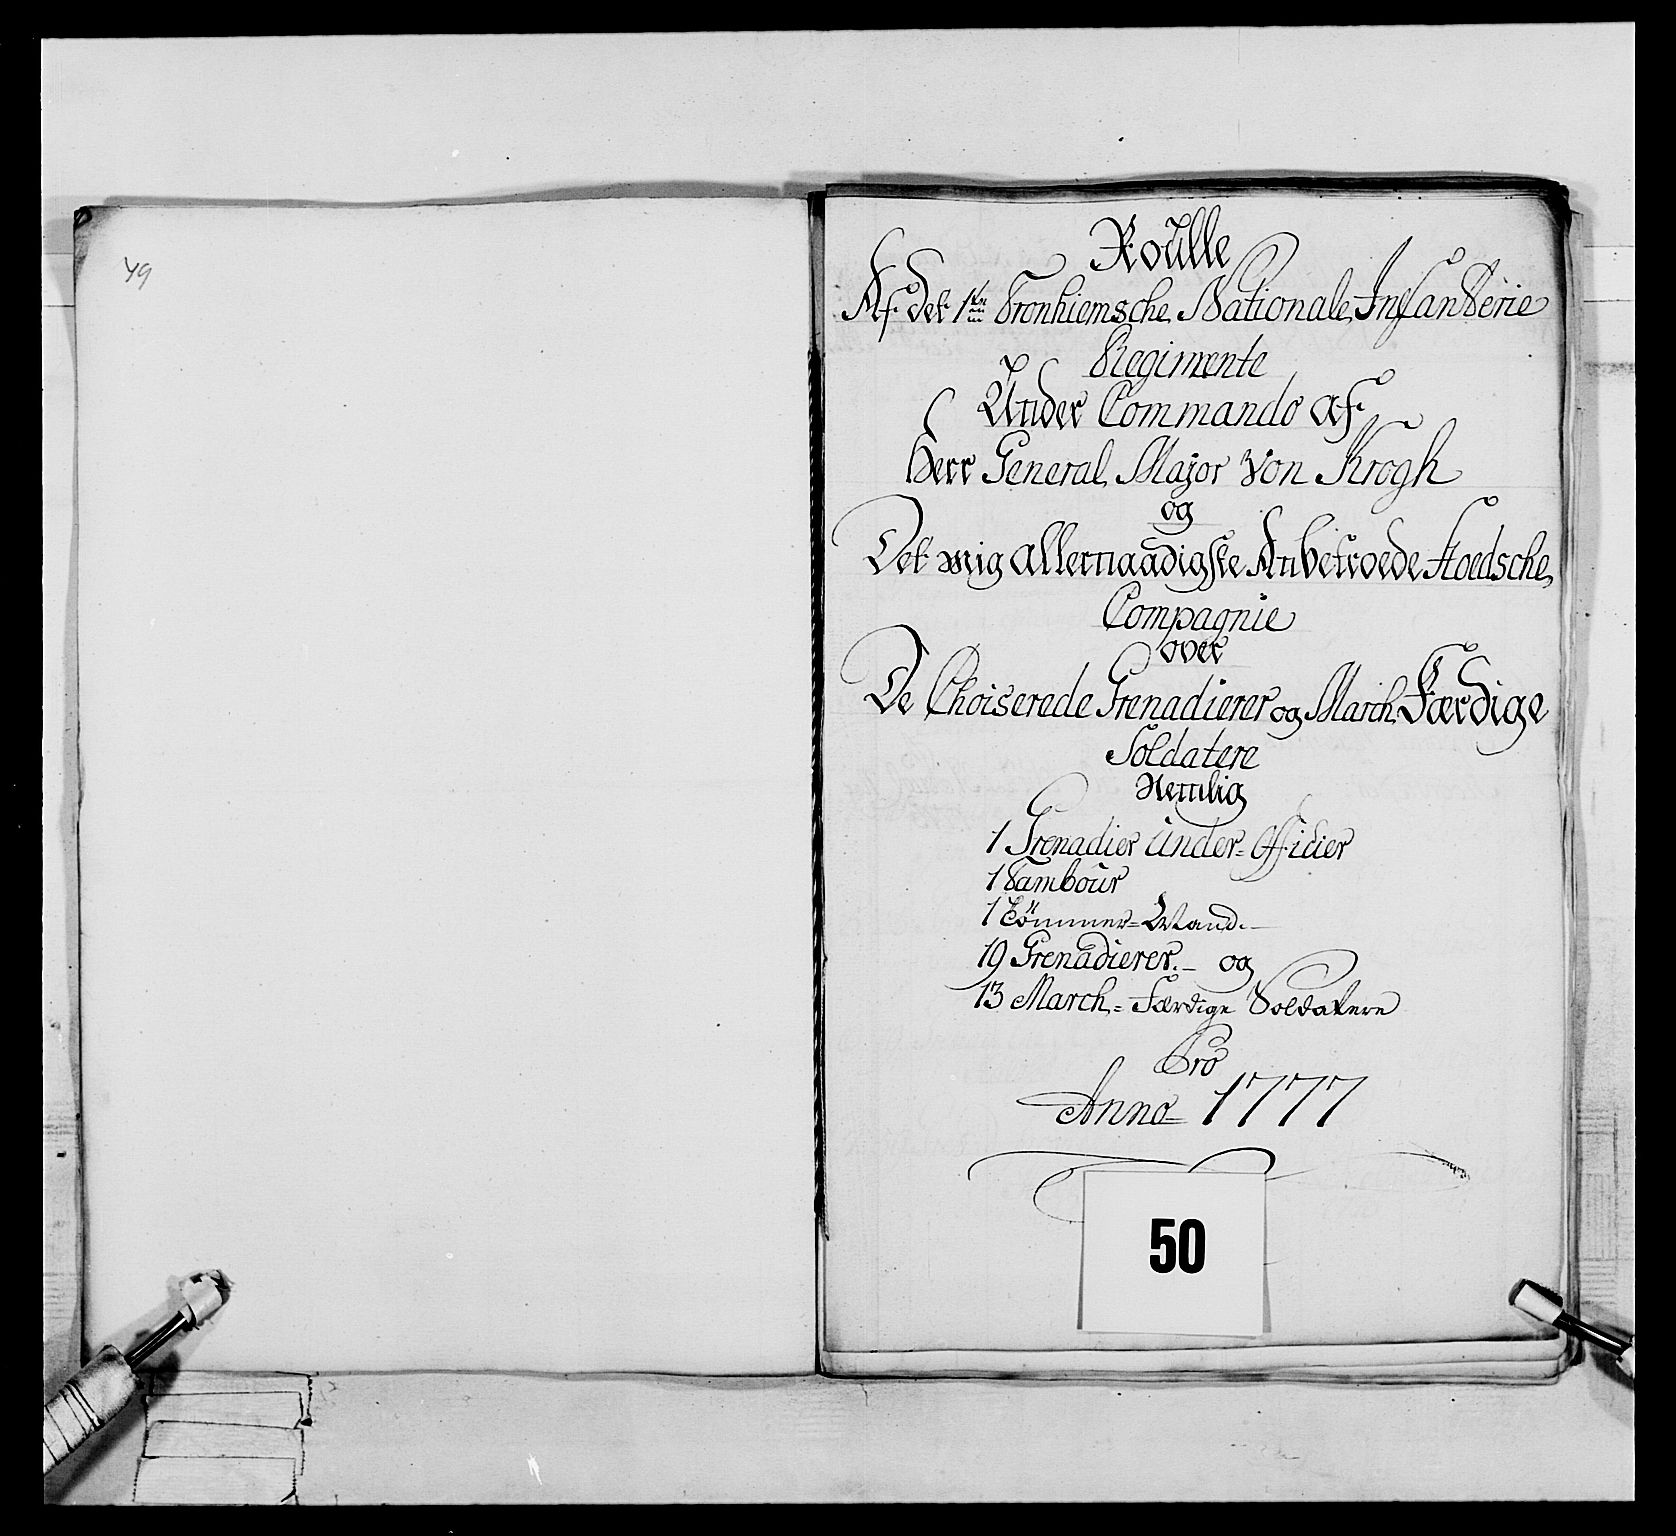 49
Roulle
Af det 1ste Tronhiemsche Nationale Infanterie
Regimente
Under Commando af
Herr General Major Von Krogh
og
Det mig allernaadigste Anbetroede
Compagnie
over
De Choiserede Grenadierer og March Færdige
Soldatere
Nemlig
1 Grenadier under=Officier
1 Tambour
1 Tømmer=Mand.
19 Grenadierer.- og
13 March=Færdige Soldatere
Pro
Anno 1777
50